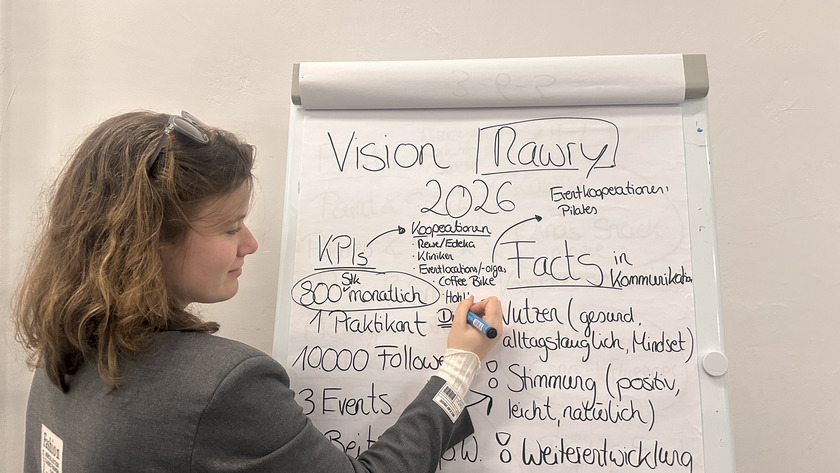 Vision Rawry
2026
Eventkooperationen:
Pilates
Kooperationen
· Rewe/Edeka
· Kliniken
· Eventlocations/-orgas
· Coffee Bike
KPIs
Stk
800 monatlich
1 Praktikant
10.000
3 Events
Facts in
Kommunikation
Nutzen (gesund,
alltagstauglich, Mindset)
Stimmung (positiv,
leicht, natürlich)
Weiterentwicklung